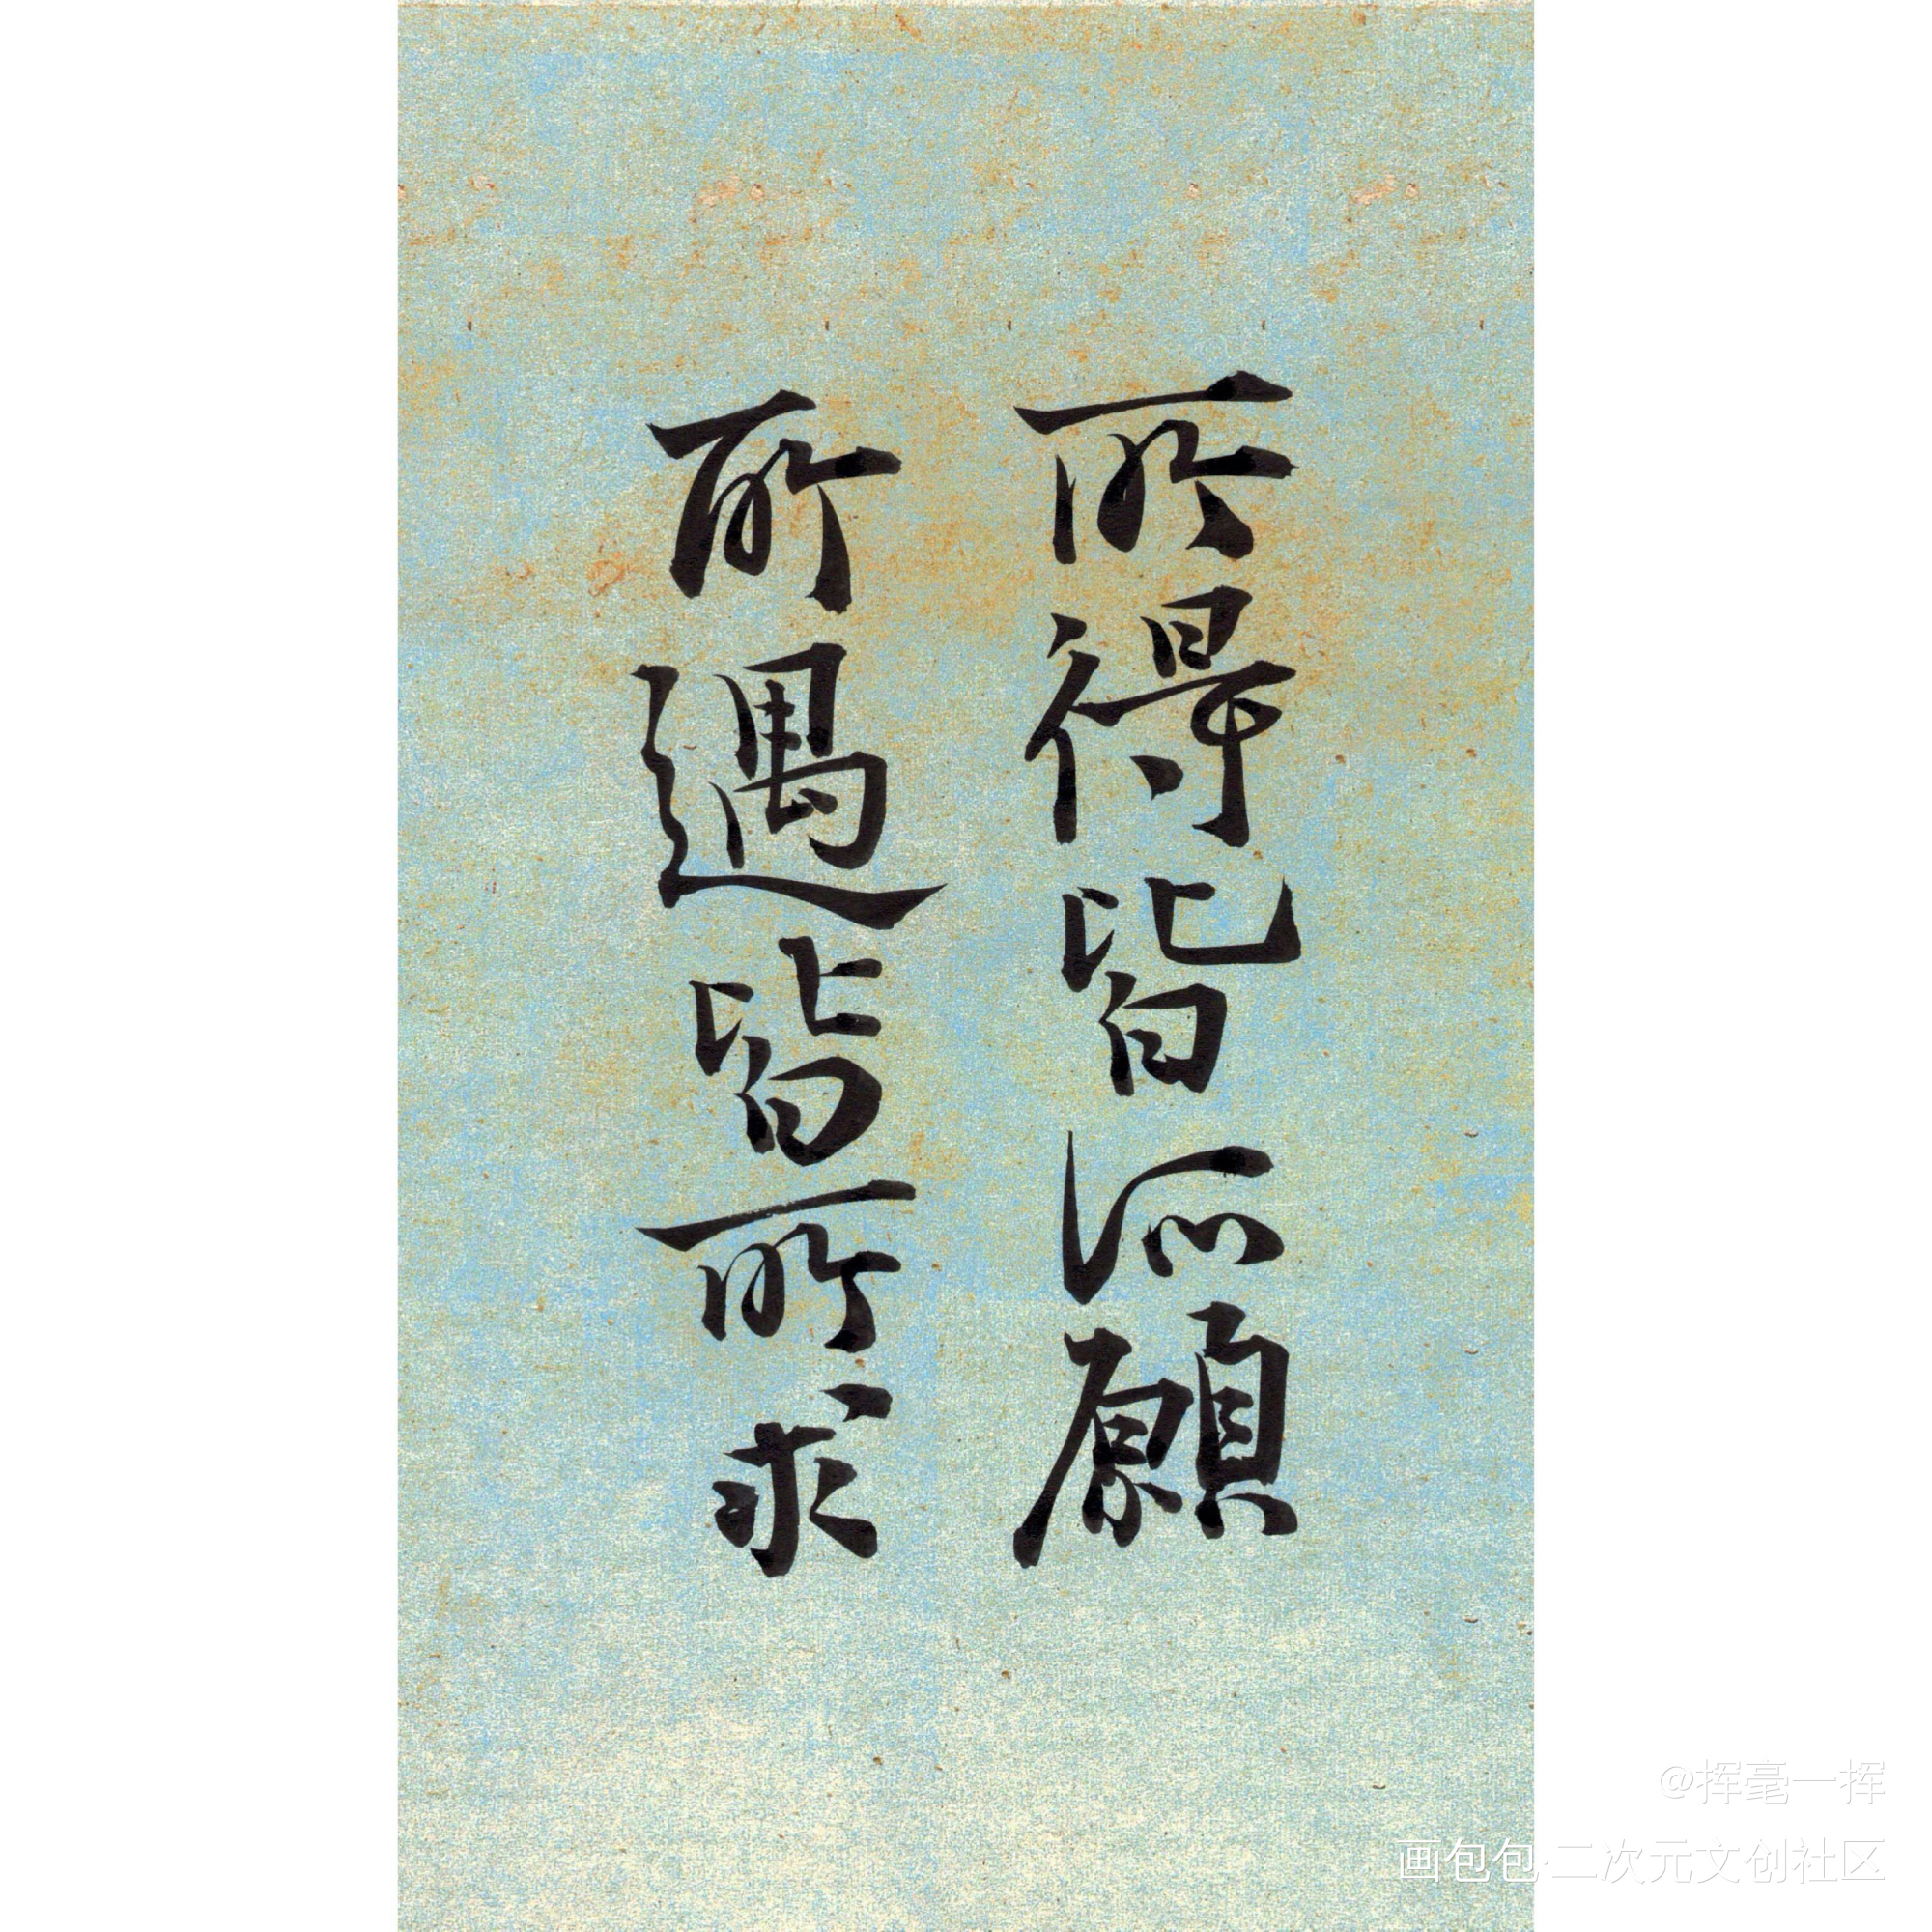 所得皆所願
所遇皆所求
@挥毫一挥
画包包·二次元文创社区